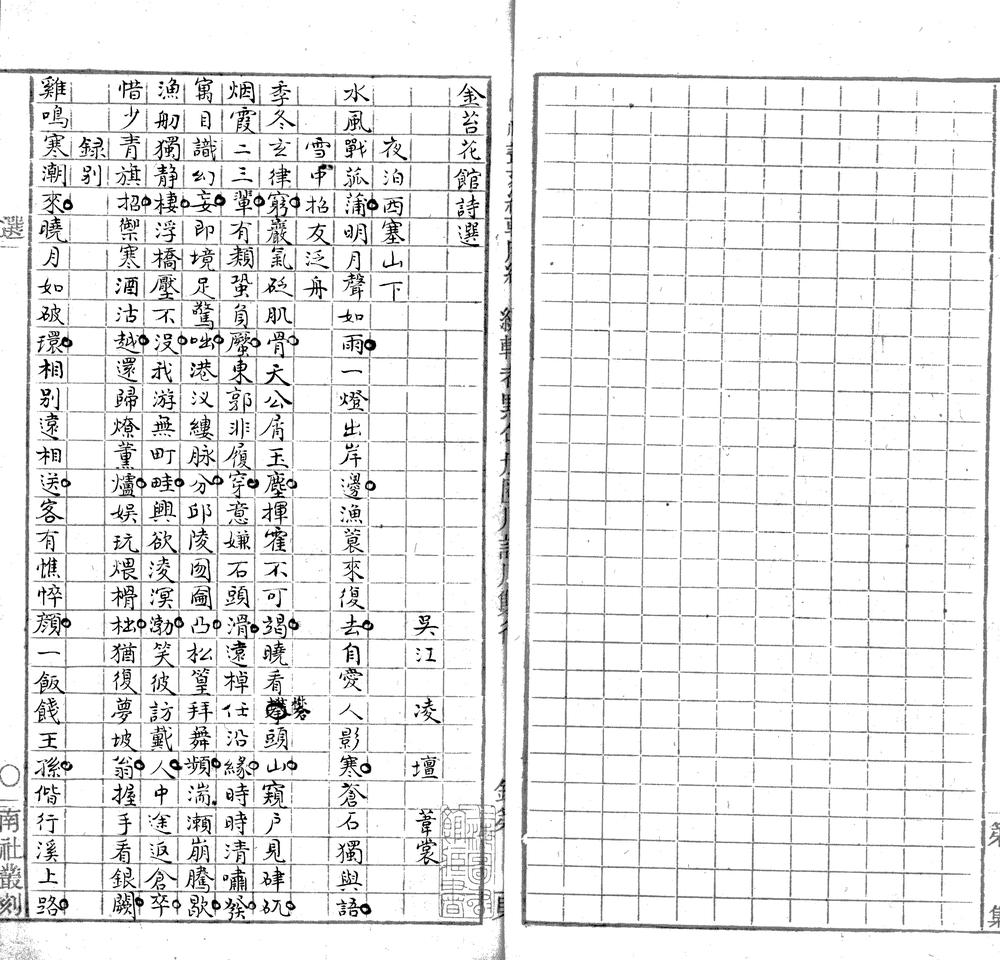 金苔花館詩選
吳江 凌壇 葦裳
夜泊西塞山下
水風戰孤蒲明月聲如雨一燈出岸邊漁蓑來復去自愛人影寒蒼石獨與語
雪中招友泛舟
季冬玄律窮嚴氣砭肌骨天公屑玉塵揮霍不可竭曉看礬頭山窺戶見硉矹
烟霞二三輩有類蛩負蟨東郭非履穿意嫌石頭滑遠棹任沿緣時時清嘯發
寓目識幻妄即境足驚咄港汊縷脉分邱陵囫圇凸松篁拜舞頻湍瀨崩騰歇
漁舠獨靜棲浮橋壓不沒我游無町畦興欲淩溟渤笑彼訪戴人中途返倉卒
惜少青旗招禦寒酒沽越還歸燎薰爐娛玩煨榾柮猶復夢坡翁握手看銀闕
録别
雞鳴寒潮來曉月如破環相別遠相送客有憔悴顏一飯餞王孫偕行溪上路
選
南社叢刻
第
集